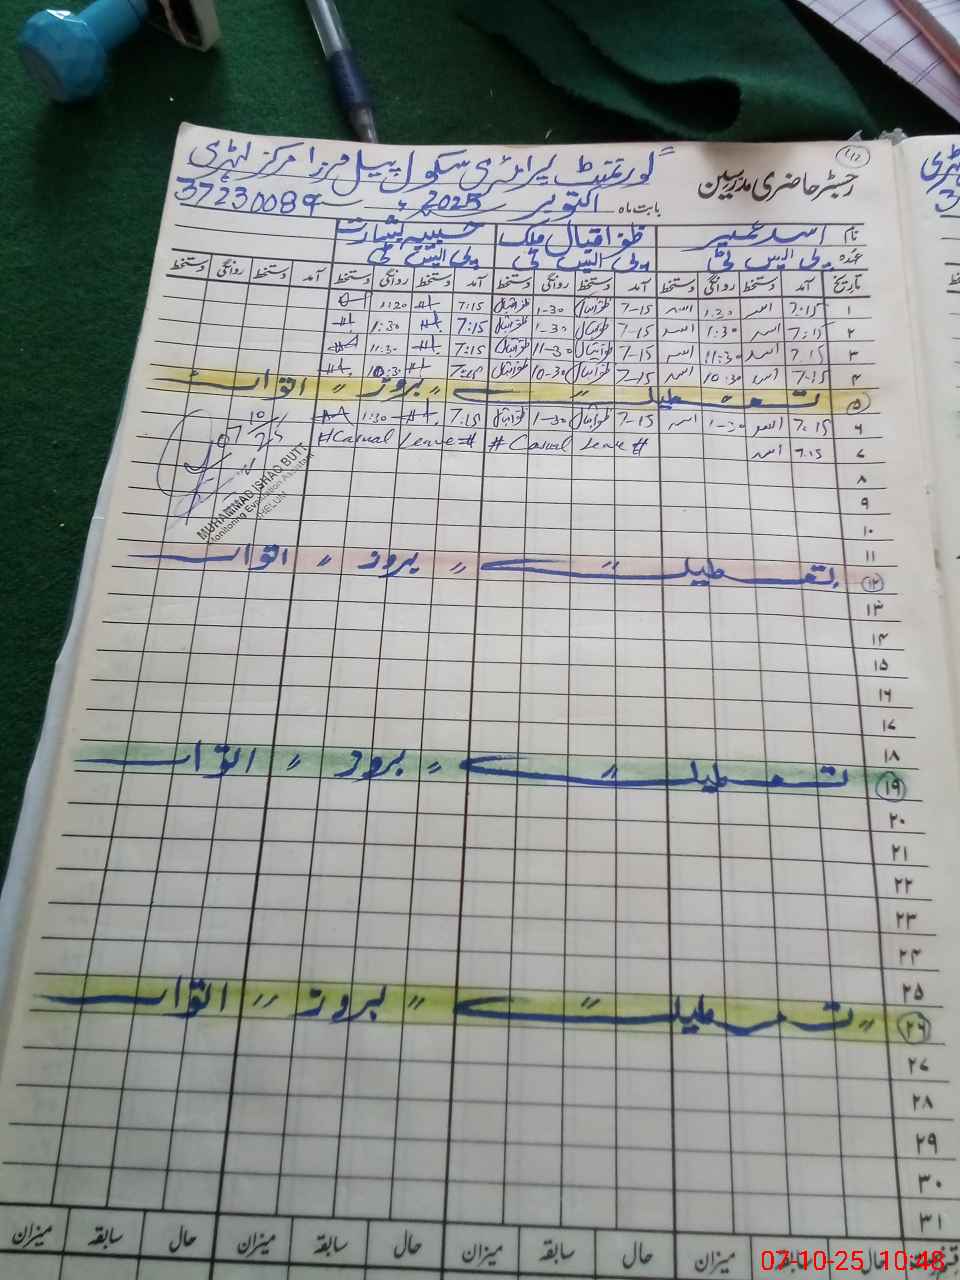 (۱۷)
رجسٹر حاضری مدرسین گورنمنٹ پرائمری سکول پیل مرزا مرکز لہڑی
بابت ماہ اکتوبر 2025ء 37230089
نام اسد ظفر اقبال ملک حسیبہ بشارت
عہدہ پی ایس ٹی پی ایس ٹی پی ایس ٹی
تاریخ آمد دستخط روانگی دستخط آمد دستخط روانگی دستخط آمد دستخط روانگی دستخط آمد دستخط روانگی دستخط
۱ 7:15 اسد 1:30 اسد 7-15 ظفراقبال 1-30 ظفراقبال 7:15 1:30
۲ 7:15 اسد 1:30 اسد 7-15 ظفراقبال 1-30 ظفراقبال 7:15 1:30
۳ 7:15 اسد 11:30 اسد 7-15 ظفراقبال 11-30 ظفراقبال 7:15 11:30
۴ 7:15 اسد 10:30 اسد 7-15 ظفراقبال 10-30 ظفراقبال 10:30
۵ تعطیل " بروز " اتوار
۶ 7:15 اسد 1-30 اسد 7-15 ظفراقبال 1-30 ظفراقبال 7:15 1:30
۷ 7:15 اسد # Casual Leave # #Casual Leave#
07/10/25
MUHAMMAD ISHAQ BUTT
Monitoring Evaluation Assistant
JHELUM
۸
۹
۱۰
۱۱
۱۲ تعطیل " بروز " اتوار
۱۳
۱۴
۱۵
۱۶
۱۷
۱۸
۱۹ تعطیل " بروز " اتوار
۲۰
۲۱
۲۲
۲۳
۲۴
۲۵
۲۶ " تعطیل " بروز " اتوار
۲۷
۲۸
۲۹
۳۰
۳۱
حال سابقہ میزان حال سابقہ میزان حال سابقہ میزان حال سابقہ میزان
07-10-25 10:48